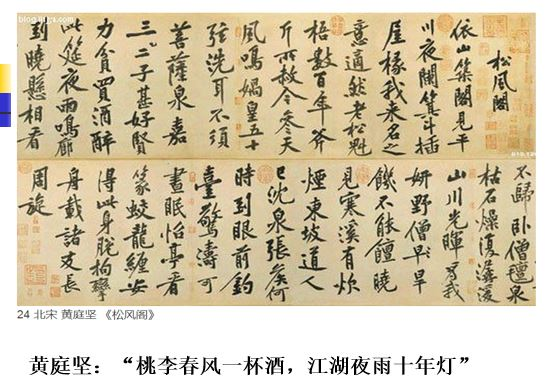 松風閣
依山築閣見平
川夜闌箕斗插
屋椽我來名之
意適然老松魁
梧數百年斧
斤所赦今參天
風鳴媧皇五十
弦洗耳不須
菩薩泉嘉
二三子甚好賢
力貧買酒醉
此筵夜雨鳴廊
到曉懸相看
不歸卧僧氈泉
枯石燥復潺湲
山川光暉為我
妍野僧早旱
饑不能饘曉
見寒溪有炊
煙東坡道人
已沈泉張侯何
時到眼前釣
臺驚濤可
晝眠怡亭看
篆蛟龍纏安
得此身脫拘攣
舟載諸友長
周旋
24 北宋 黄庭坚 《松风阁》
黄庭坚：“桃李春风一杯酒，江湖夜雨十年灯”